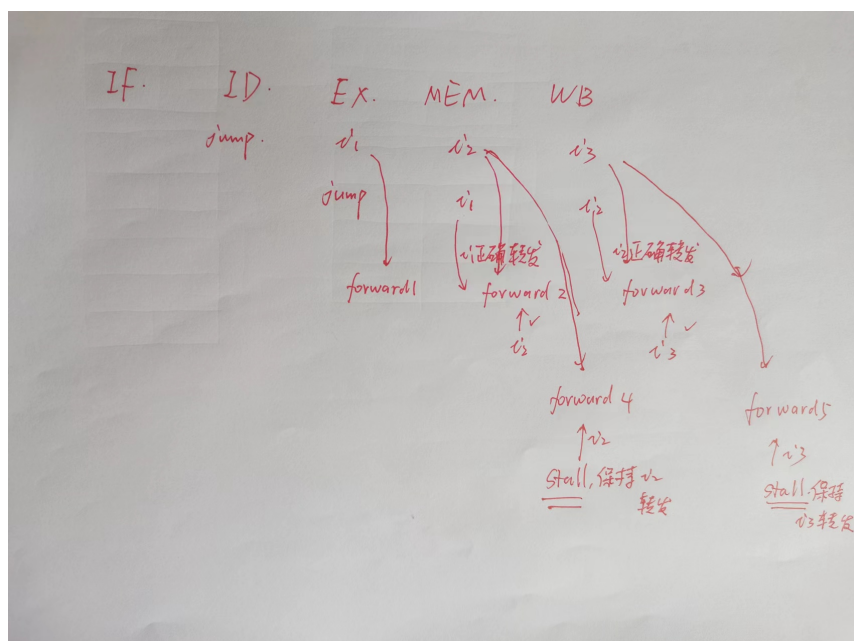 IF. ID. EX. MEM. WB
jump. i1 i2 i3
jump i1 i2
i1正确转发 i2正确转发
forward1 forward2 forward3
✓ ✓
i2 i3
forward4 forward5
i2 i3
stall,保持i2 stall.保持
转发 i3转发